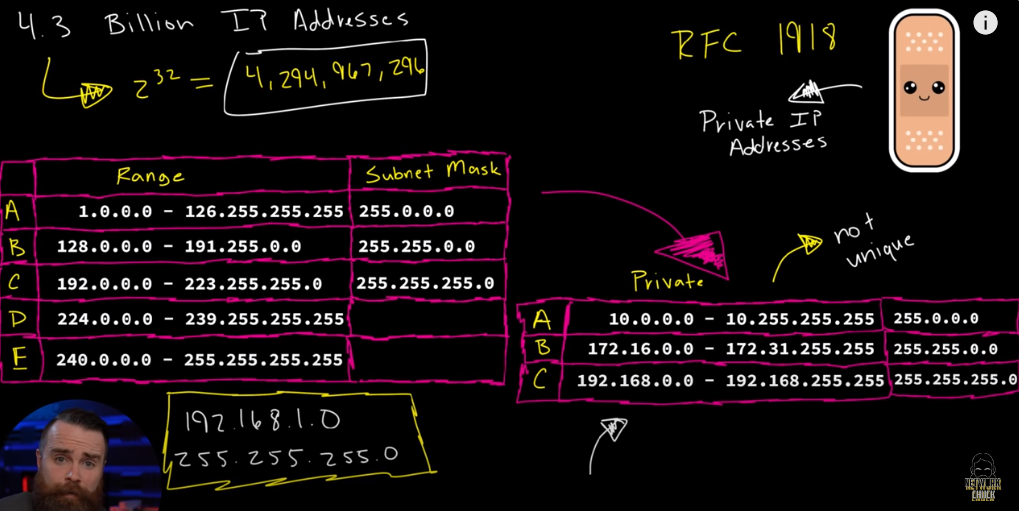 4.3 Billion IP Addresses
2^32 = 4,294,967,296
RFC 1918
Private IP
Addresses
Range Subnet Mask
A 1.0.0.0 - 126.255.255.255 255.0.0.0
B 128.0.0.0 - 191.255.0.0 255.255.0.0
C 192.0.0.0 - 223.255.255.0 255.255.255.0
D 224.0.0.0 - 239.255.255.255
E 240.0.0.0 - 255.255.255.255
not
unique
Private
A 10.0.0.0 - 10.255.255.255 255.0.0.0
B 172.16.0.0 - 172.31.255.255 255.255.0.0
C 192.168.0.0 - 192.168.255.255 255.255.255.0
192.168.1.0
255.255.255.0
NETWORK
CHUCK
i